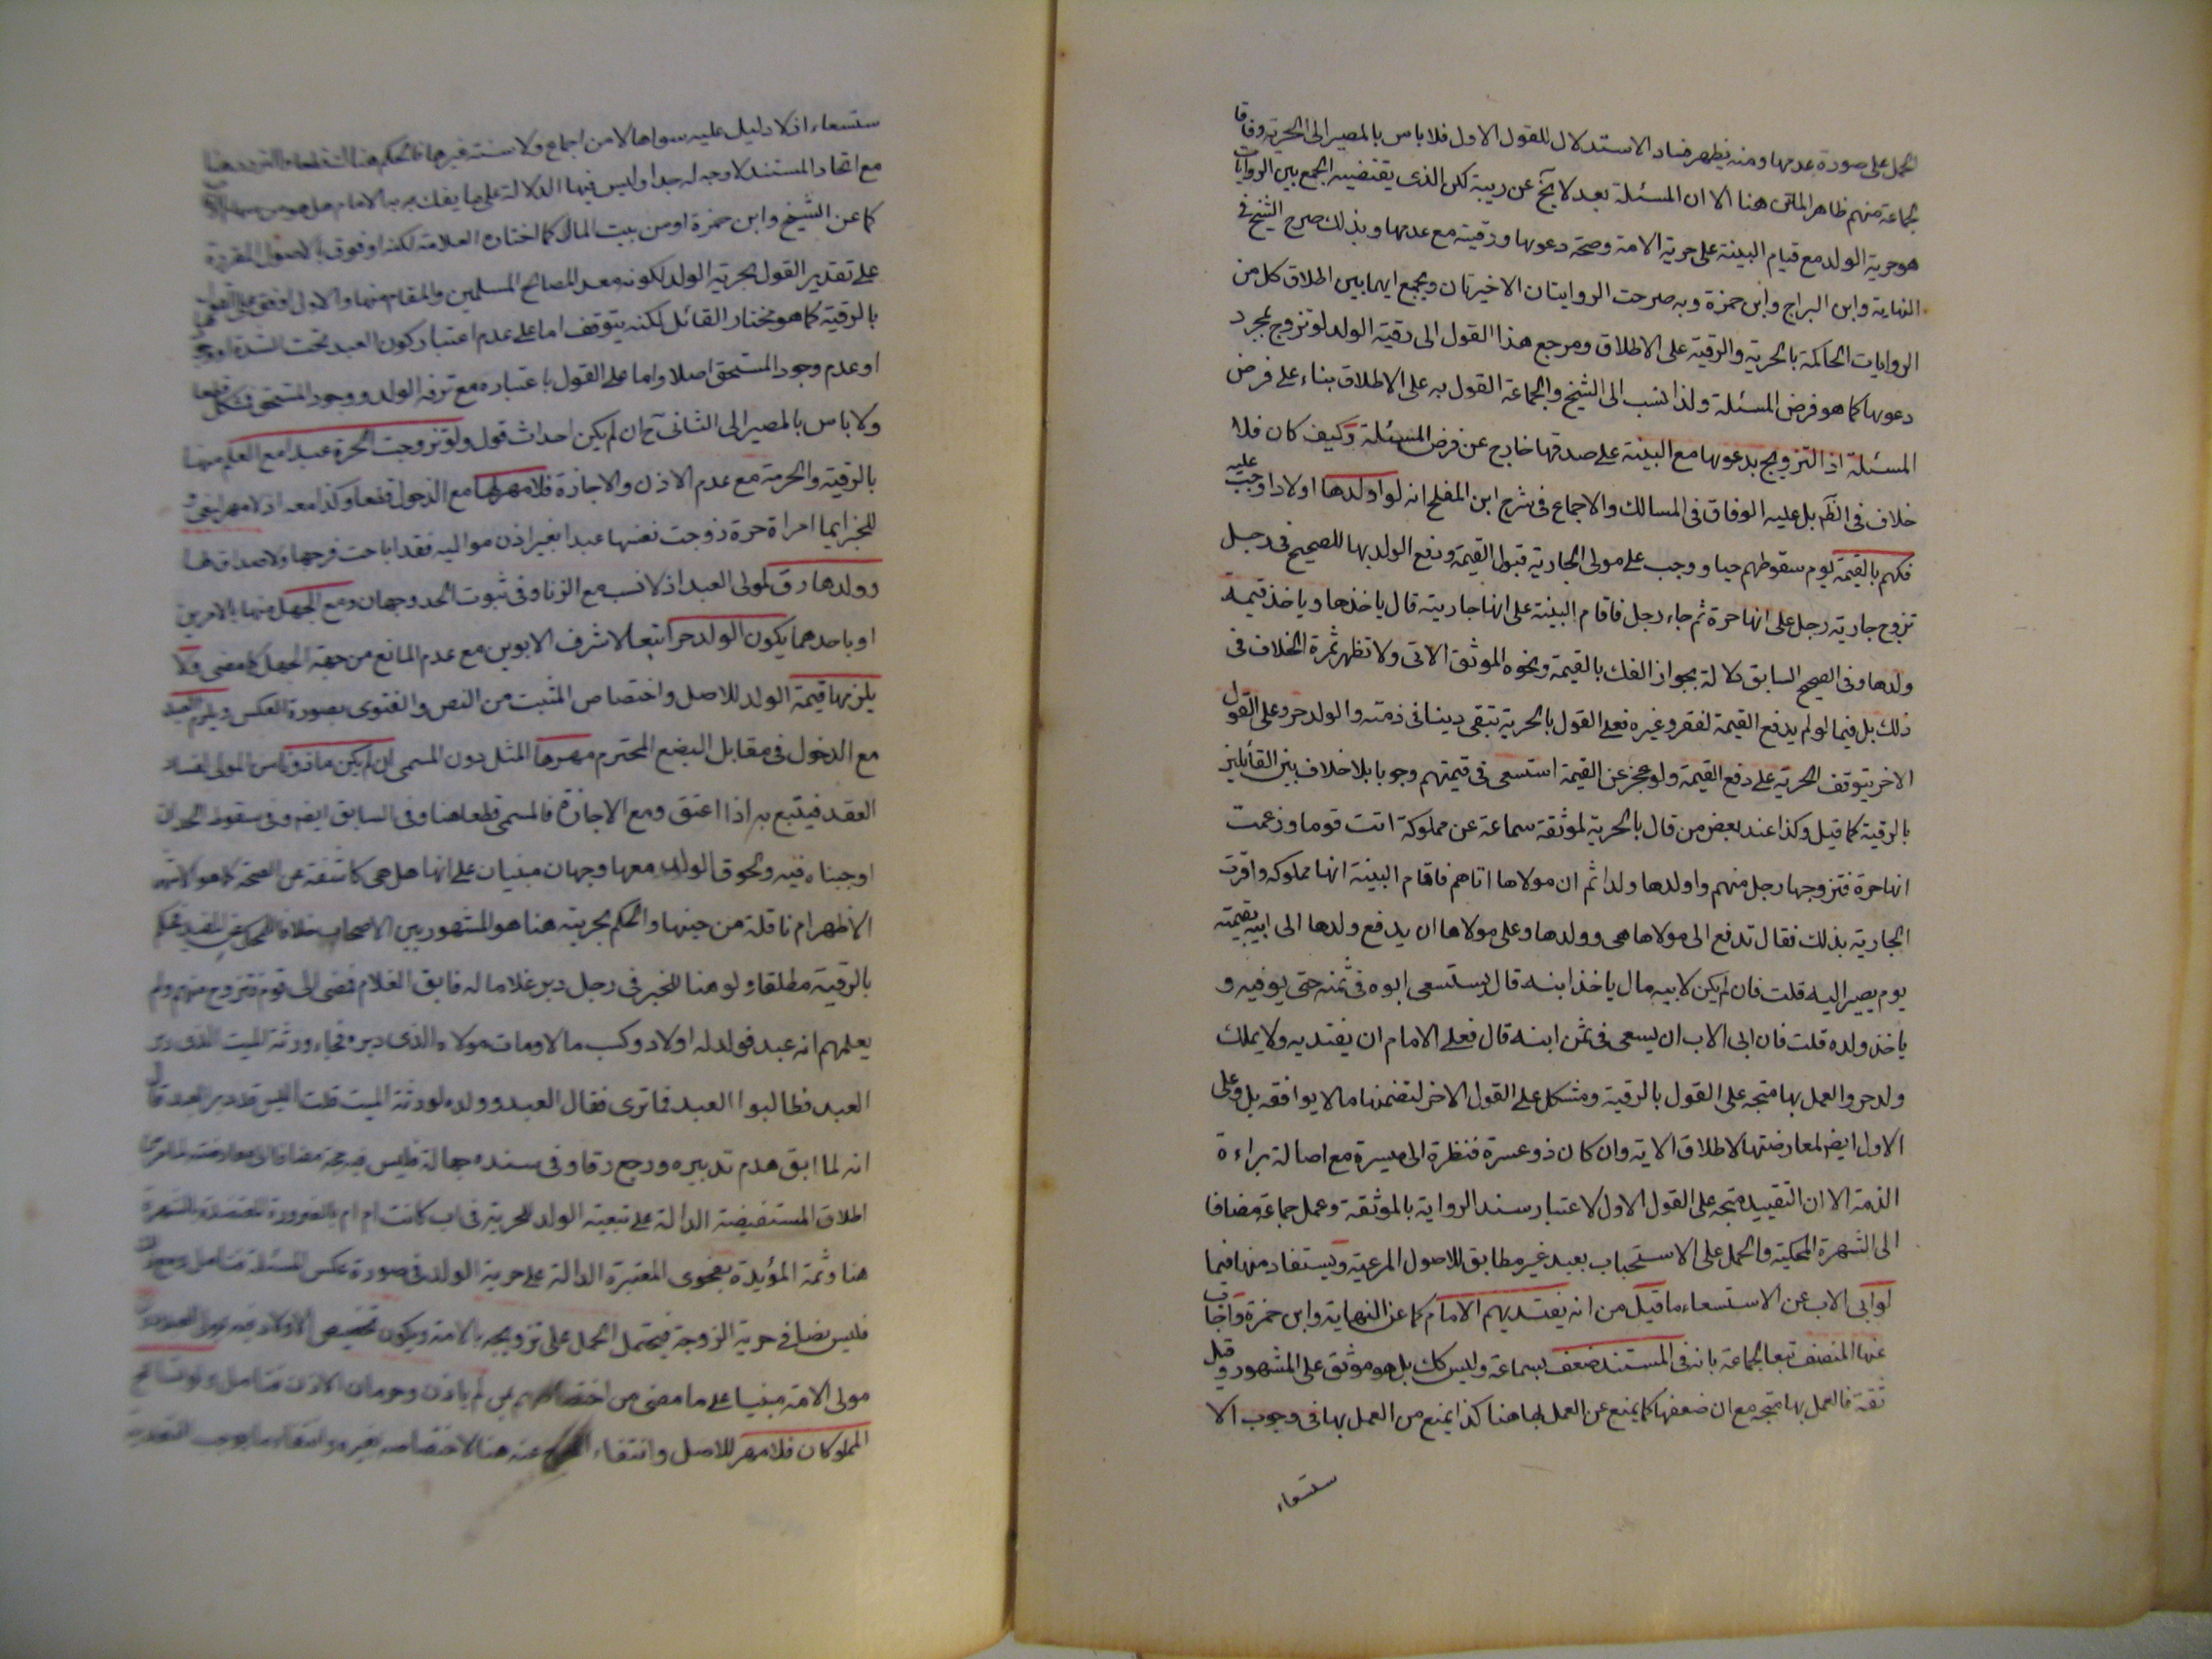 الحمل على صورة عدمها ومنه يظهر فساد الاستدلال للقول الاول فلا باس بالمصير الى الحرية وفاقا
لجماعة منهم ظاهر الماتن هنا الا ان المسئلة بعد لا يخ عن ريبة لكن الذى يقتضيه الجمع بين الروايات
هو حرية الولد مع قيام البينة على حرية الامة وصحة دعوبها ورقيته مع عدمها وبذلك صرح الشيخ فى
النهاية وابن البراج وابن حمزة وبه صرحت الروايتان الاخيرتان ويجمع ايهما بين اطلاق كل من
الروايات الحاكمة بالحرية والرقية على الاطلاق ومرجع هذا القول الى رقية الولد لو تزوج لمجرد
دعوبها كما هو فرض المسئلة ولذا نسب الى الشيخ والجماعة القول به على الاطلاق بناء على فرض
المسئلة اذ التزويج بدعوبها مع البينة على صدقها خارج عن فرض المسئلة وكيف كان فلا
خلاف فى الظم بل عليه الوفاق فى المسالك والاجماع فى شرح ابن المفلح انه لو اولدها اولادا وجب عليه
فكهم بالقيمة يوم سقوطهم حيا ووجب على مولى الجارية قبول القيمة ودفع الولد بها للصحيح فى رجل
تزوج جارية رجل على انها حرة ثم جاء رجل فاقام البينة على انها جاريته قال ياخذها وياخذ قيمة
ولدها وفى الصحيح السابق دلالة بجواز الفك بالقيمة ونحوه الموثق الاتى ولا تظهر ثمرة الخلاف فى
ذلك بل فيما لو لم يدفع القيمة لفقر وغيره فعلى القول بالحرية تبقى دينا فى ذمته والولد حر وعلى القول
الاخر يتوقف الحرية على دفع القيمة ولو عجز عن القيمة استسعى فى قيمتهم وجوبا بلا خلاف بين القائلين
بالرقية كما قيل وكذا عند بعض من قال بالحرية لموثقة سماعة عن مملوكة اتت قوما وزعمت
انها حرة فتزوجها رجل منهم واولدها ولدا ثم ان مولاها اتاهم فاقام البينة انها مملوكه واقرت
الجارية بذلك فقال تدفع الى مولاها هى وولدها وعلى مولاها ان يدفع ولدها الى ابيه بقيمته
يوم يصير اليه قلت فان لم يكن لابيه مال ياخذ ابنه قال يستسعى ابوه فى ثمنه حتى يوفيه و
ياخذ ولده قلت فان ابى الاب ان يسعى فى ثمن ابنه قال فعلى الامام ان يفتديه ولا يملك
ولد حر والعمل بها متجه على القول بالرقية ومشكل على القول الاخر لتضمنها ما لا يوافقه بل وعلى
الاول ايض لمعارضتها لاطلاق الاية وان كان ذو عسرة فنظرة الى ميسرة مع اصالة براءة
الذمة الا ان التقييد متجه على القول الاول لاعتبار سند الرواية بالموثقة وعمل جماعة مضافا
الى الشهرة المحكية والحمل على الاستحباب بعيد غير مطابق للاصول المرعية ويستفاد منها فيما
لو ابى الاب عن الاستسعاء ما قيل من انه يفتديهم الامام كما عن النهاية وابن حمزة واجاب
عنها المنصف تبعا لجماعة بانه فى المستند ضعف بسماعة وليس كك بل هو موثق على المشهور وقيل
ثقة فالعمل بها متجه مع ان ضعفها كما يمنع عن العمل بها هنا كذا يمنع من العمل بها فى وجوب الا
ستسعاء
ستسعاء اذ لا دليل عليه سواها لا من اجماع ولا سنة غيرها فالحكم هنا
مع اتحاد المستند لا وجه له جدا وليس فيها الدلالة على ما يفك به الامام هل هو من
كما عن الشيخ وابن حمزة او من بيت المال كما اختاره العلامة لكنه اوفق بالاصول المقررة
على تقدير القول بحرية الولد لكونه معد للمصالح المسلمين والمقام منها والاول اوفق على القول
بالرقية كما هو مختار القائل لكنه يتوقف اما على عدم اعتبار كون العبد تحت الشدة
او عدم وجود المستحق اصلا واما على القول باعتباره مع ترفه الولد ووجود المستحق فشكل قطعا
ولا باس بالمصير الى الثانى ح ان لم يكن احداث قول ولو تزوجت الحرة عبدا مع العلم منها
بالرقية والحرمة مع عدم الاذن والاجازة فلا مهر لها مع الدخول قطعا وكذا معه اذ لا مهر لبغى و
للخبر ايما امراة حرة زوجت نفسها عبدا بغير اذن مواليه فقد اباحت فرجها ولا صداق لها
وولدها رق لمولى العبد اذ لا نسب مع الزنا وفى ثبوت الحد وجهان ومع الجهل منها بالامرين
او باحدهما يكون الولد حرا تبعا لاشرف الابوين مع عدم المانع من جهة الجهل كما مضى ولا
يلزمها قيمة الولد للاصل واختصاص المثبت من النص والفتوى بصورة العكس ويلزم العبد
مع الدخول فى مقابل البضع المحترم مهرها المثل دون المسمى ان لم يكن ماذونا من المولى لفساد
العقد فيتبع به اذا اعتق ومع الاجازة فالمسمى قطعا هنا وفى السابق ايض وفى سقوط الحد ان
اوجبناه فيه ولحوق الولد معها وجهان مبنيان على انها هل هى كاشفة عن الصحة كما هو الاشهر
الاظهر ام ناقلة من حينها والحكم بحريته هنا هو المشهور بين الاصحاب خلافا للمحكى عن المفيد فحكم
بالرقية مطلقا ولو هنا للخبر فى رجل دبر غلاما له فابق الغلام فمضى الى قوم فتزوج منهم ولم
يعلمهم انه عبد فولد له اولاد وكسب مالا ومات مولاه الذى دبره فجاء ورثة الميت الذى دبر
العبد فطالبوا العبد فما ترى فقال العبد وولده لورثة الميت قلت اليس قد دبر العبد قال
انه لما ابق هدم تدبيره ورجع رقا وفى سنده جهالة فليس فيه حجة مضافا الى معارضته لما مرى
اطلاق المستفيضة الدالة على تبعية الولد للحرية فى اب كانت ام ام بالضرورة المعتضدة بالشهرة
هنا وثمة المؤيدة بفحوى المعتبرة الدالة على حرية الولد فى صورة عكس المسئلة فتامل ومع
فليس نصا فى حرية الزوجة فيحتمل الحمل على تزويجه بالامة ويكون تخصيص الاولاد فيه
مولى الامة مبنيا على ما مضى من اختصاصهم بمن لم ياذن وحرمان الاذن فتامل ولو تسافح
المملوكان فلا مهر للاصل وانتفاء عنه هنا لاختصاصه بغيره وانتفاء ما يوجب التعدية